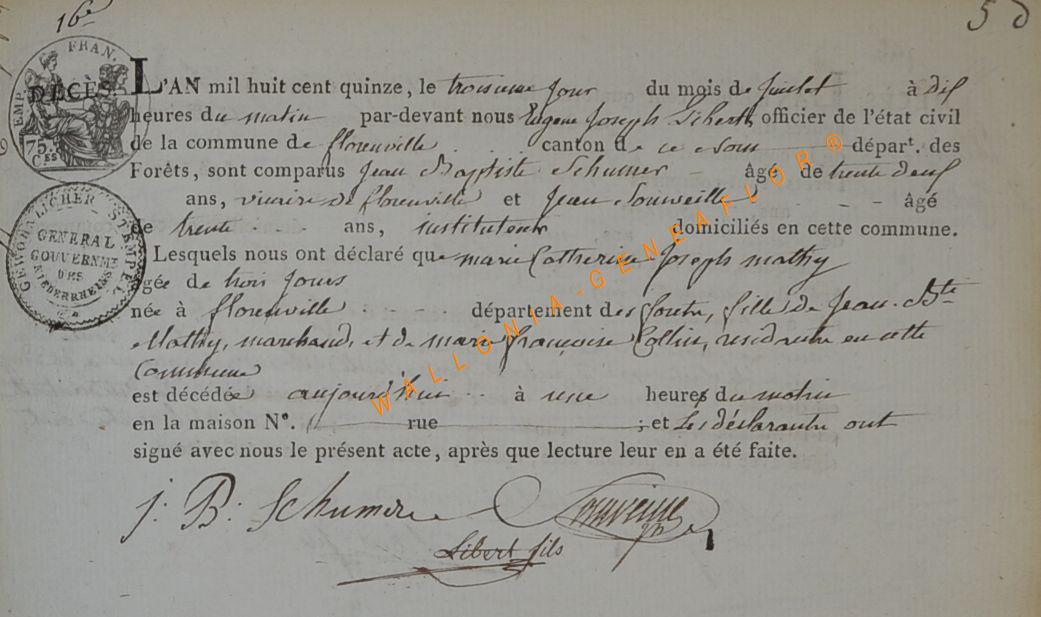 16e
5 d
EMP. FRAN.
DÉCÈS
75.
CES
GEWOEHNLICHER STEMPEL
GENERAL
GOUVERNMT
DES
NIEDERRHEINS
L'AN mil huit cent quinze, le troisieme jour du mois de Juillet à dix
heures du matin par-devant nous Eugene Joseph Libert, officier de l'état civil
de la commune de florenville canton de ce nom dépar t. des
Forêts, sont comparus Jean Baptiste Schumer âgé de trente deux
ans, vicaire de florenville et Jean Souveille âgé
de trente ans, instituteur domiciliés en cette commune.
Lesquels nous ont déclaré que marie Catherine Joseph mathy
agée de trois jours
née à florenville département des foretx, fille de Jean Bte
Mathy, marchand, et de marie françoise Collin, residante en cette
Commune
est décédée aujourd'hui à une heures du matin
en la maison N°. rue ; et Les déclarants ont
signé avec nous le présent acte, après que lecture leur en a été faite.
J: B: Schumer
Libert fils
WALLONIA-GENEAFLOR®